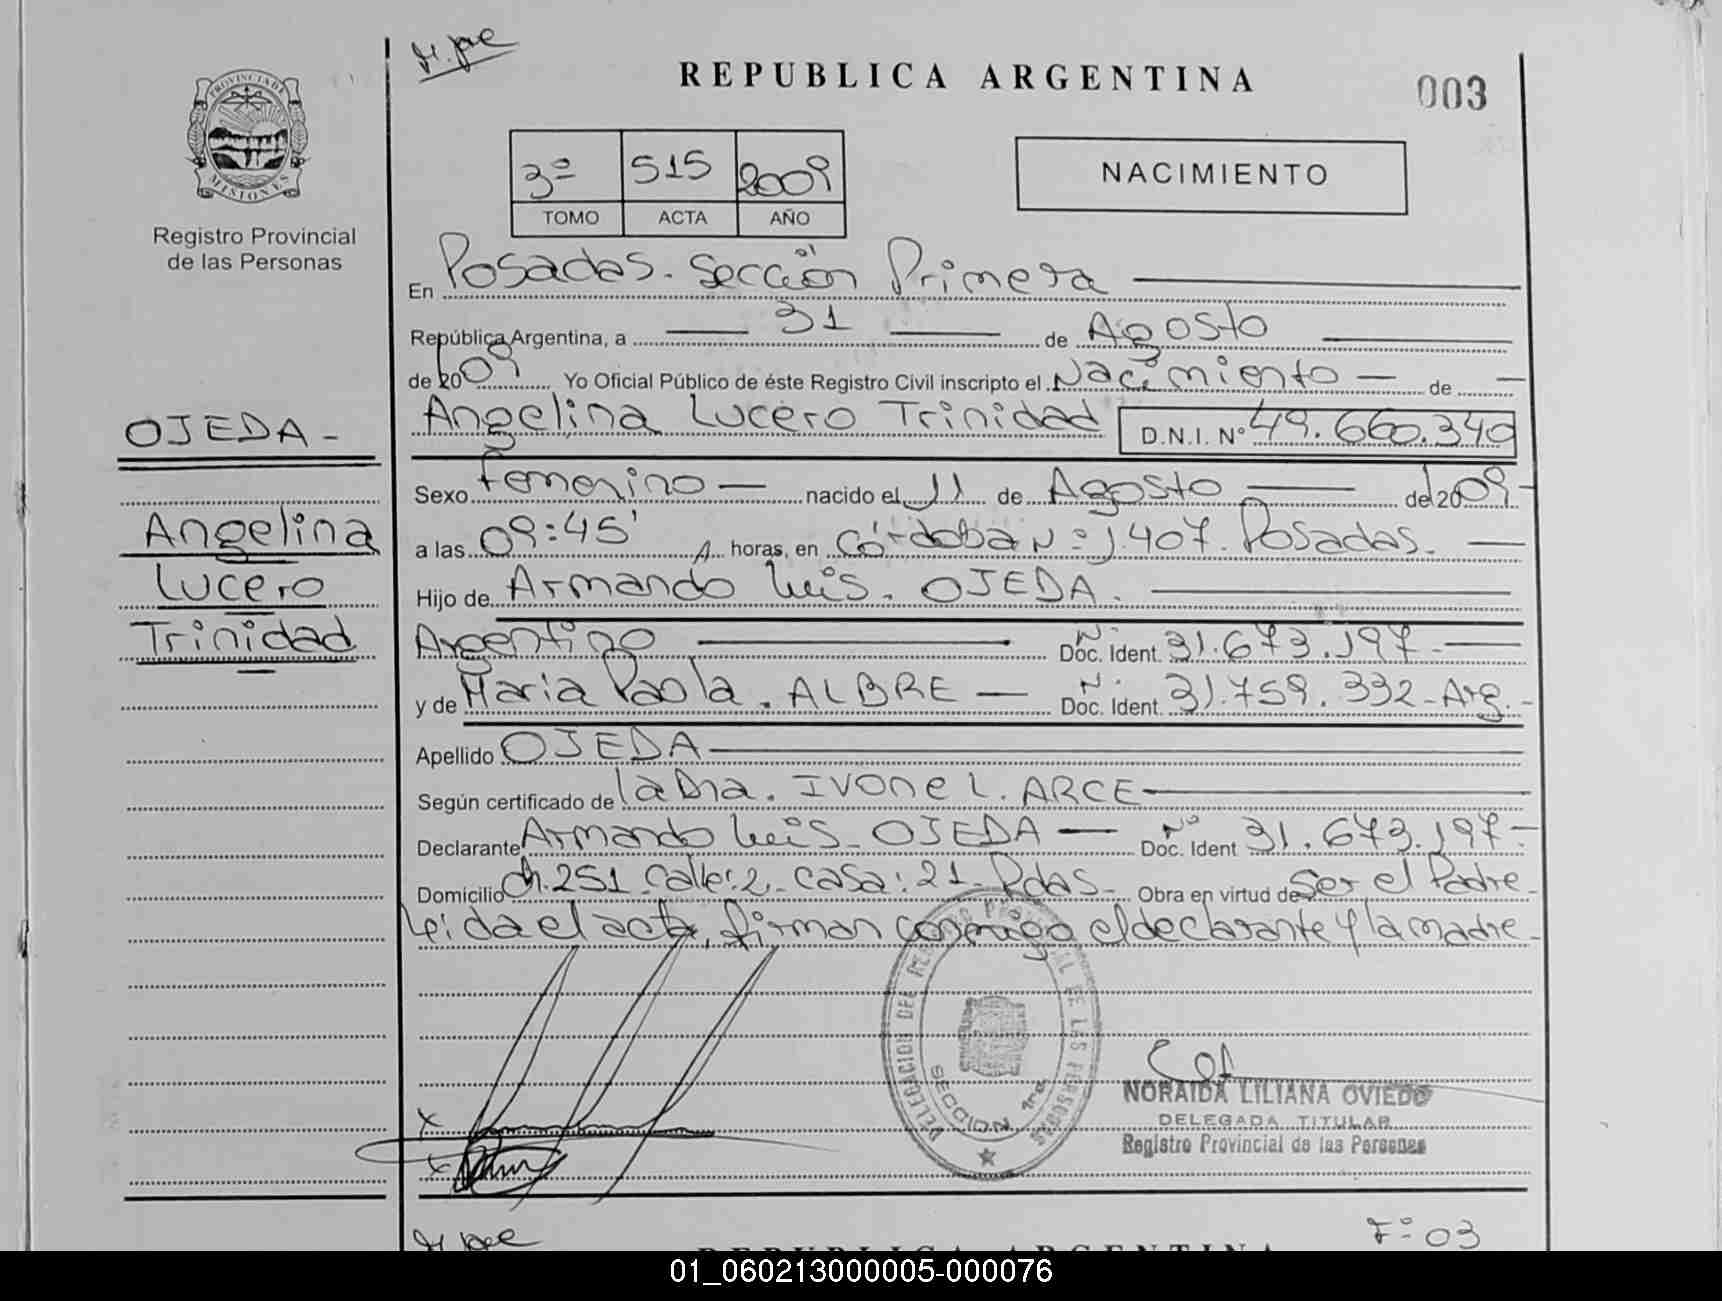 REPUBLICA ARGENTINA
003
PROVINCIA DE
MISIONES
Registro Provincial
de las Personas
3º 515 2009
TOMO ACTA AÑO
NACIMIENTO
En Posadas. Sección Primera
República Argentina, a 31 de Agosto
de 2009 Yo Oficial Público de éste Registro Civil inscripto el Nacimiento de
Angelina Lucero Trinidad D.N.I. Nº 49.660.340
OJEDA
Angelina
Lucero
Trinidad
Sexo Femenino nacido el 11 de Agosto de 2009
a las 09:45' horas, en Córdoba Nº 1.407. Posadas.
Hijo de Armando Luis. OJEDA.
Argentino Nº Doc. Ident. 31.673.197
y de Maria Paola. ALBRE Nº Doc. Ident. 31.759.332-Arg.
Apellido OJEDA
Según certificado de la Dra. IVONE L. ARCE
Declarante Armando Luis OJEDA Nº Doc. Ident 31.673.197
Domicilio Ch. 251 Calle: 2 casa: 21 Pdas. Obra en virtud de Ser el Padre
Leida el acta, firman conmigo el declarante y la madre
DELEGACION DEL REGISTRO PROVINCIAL DE LAS PERSONAS
SECCION 1ra
NORAIDA LILIANA OVIEDO
DELEGADA TITULAR
Registro Provincial de las Personas
Fº 03
REPUBLICA ARGENTINA
01_060213000005-000076